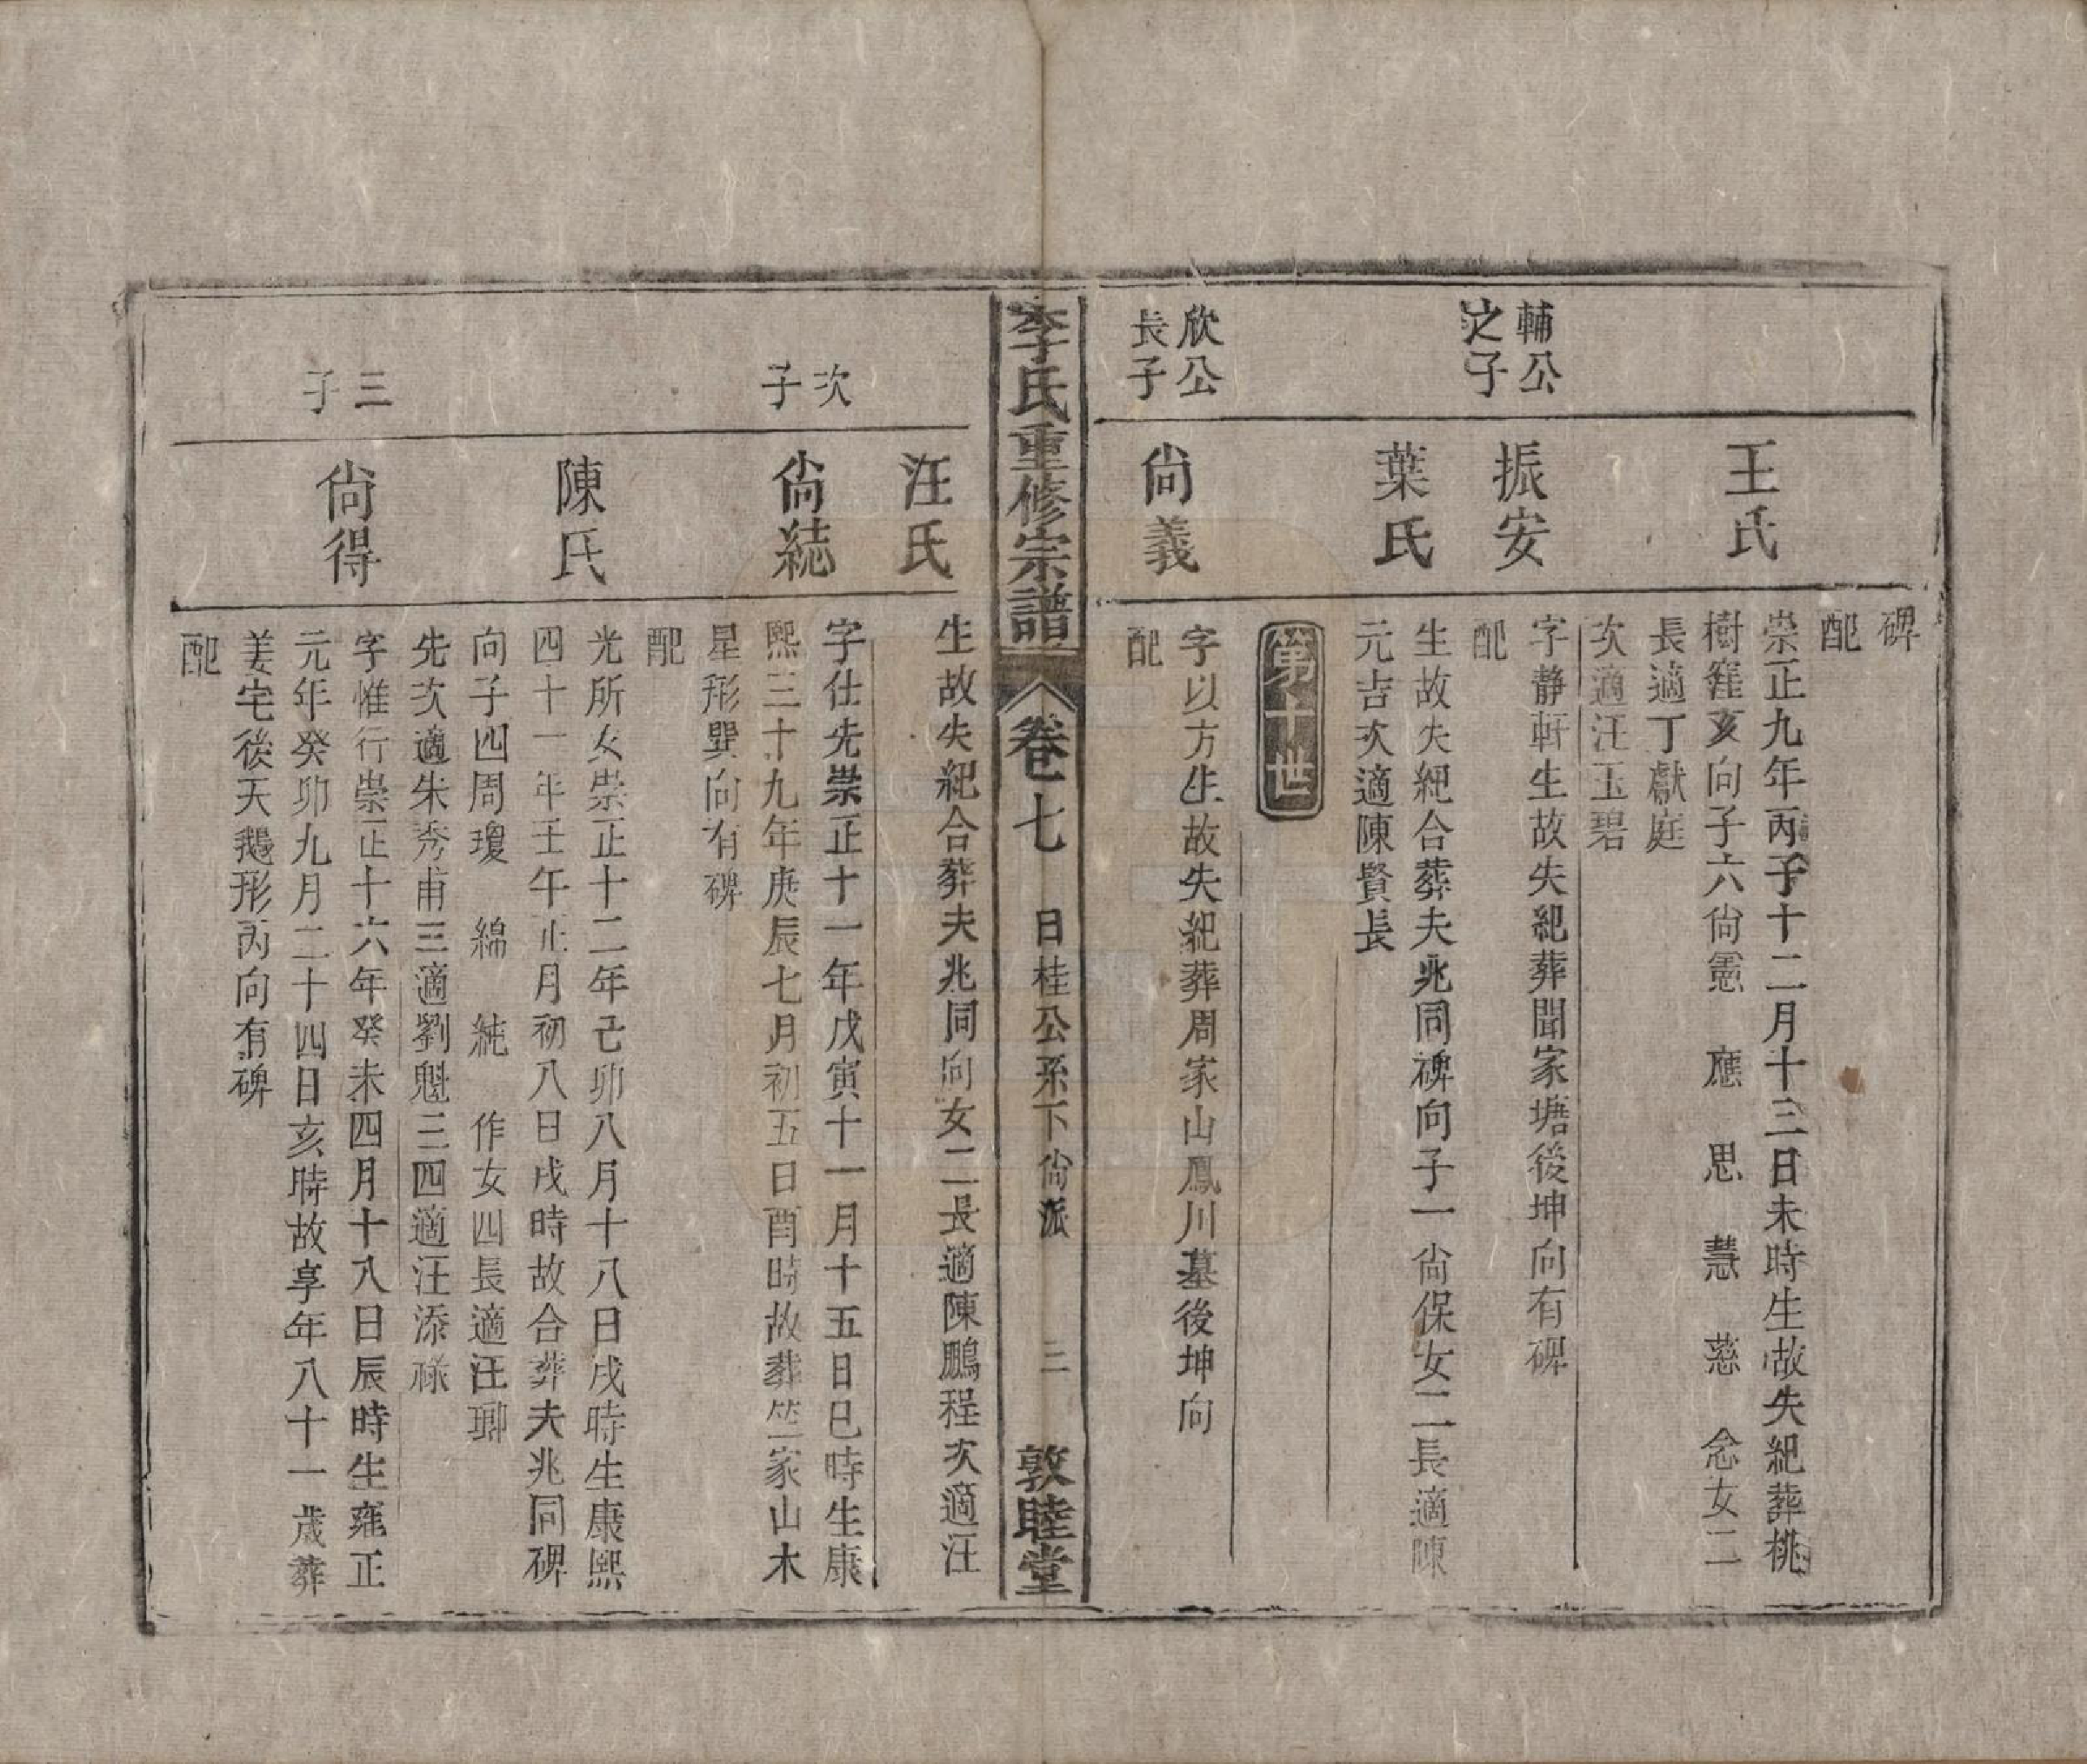 碑
配
王氏
崇正九年丙子十二月十三日未時生故失紀葬桃
樹窪亥向子六尙憲　應　思　慧　慈　念女二
長適丁獻庭
次適汪玉碧
輔公
之子
振安
字靜軒生故失紀葬聞家塘後坤向有碑
配
葉氏
生故失紀合葬夫兆同碑向子一尙保女二長適陳
元吉次適陳賢長
第十世
欣公
長子
尙義
字以方生故失紀葬周家山鳳川墓後坤向
配
李氏重修宗譜　卷七　日桂公系下尙派　三　敦睦堂
汪氏
生故失紀合葬夫兆同向女二長適陳鵬程次適汪
次
子
尙綕
字仕先崇正十一年戊寅十一月十五日巳時生康
熙三十九年庚辰七月初五日酉時故葬竺家山木
星形巽向有碑
配
陳氏
光所女崇正十二年己卯八月十八日戌時生康熙
四十一年壬午正月初八日戌時故合葬夫兆同碑
向子四周瓊　綿　純　作女四長適汪瑯
先次適朱秀甫三適劉魁三四適汪添祿
三
子
尙得
字惟行崇正十六年癸未四月十八日辰時生雍正
元年癸卯九月二十四日亥時故享年八十一歲葬
姜宅後天鵝形丙向有碑
配